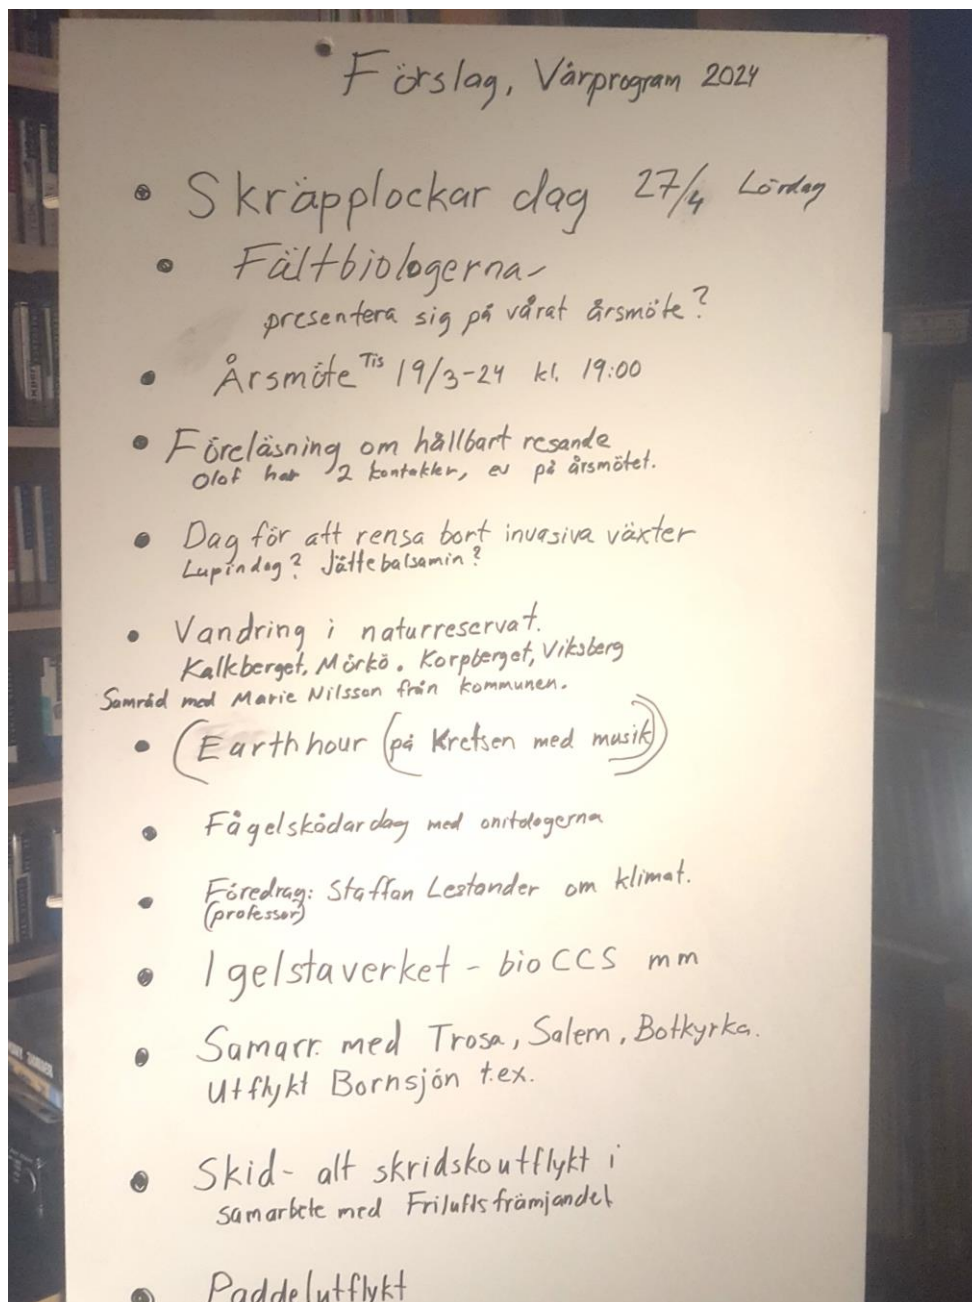 Förslag, Vårprogram 2024
• Skräpplockar dag 27/4 Lördag
• Fältbiologerna
presentera sig på vårat årsmöte?
• Årsmöte Tis 19/3-24 kl. 19:00
• Föreläsning om hållbart resande
Olof har 2 kontakter, ev på årsmötet.
• Dag för att rensa bort invasiva växter
Lupindag? Jättebalsamin?
• Vandring i naturreservat.
Kalkberget, Mörkö. Korpberget, Viksberg
Samråd med Marie Nilsson från kommunen.
• (Earth hour (på Kretsen med musik))
• Fågelskådardag med onitologerna
• Föredrag: Staffan Lestander om klimat.
(professor)
• Igelstaverket - bio CCS mm
• Samarr. med Trosa, Salem, Botkyrka.
Utflykt Bornsjön t.ex.
• Skid- alt skridskoutflykt i
samarbete med Friluftsfrämjandet
• Paddelutflykt